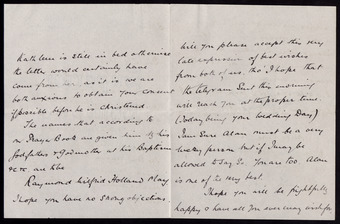 Kathleen is still in bed otherwise
the letter would certainly have
come from her, as it is we are
both anxious to obtain your consent
if possible before he is christened
The names that according to
Prayer Book are given him by his
Godfather & Godmother at his Baptism
etc. are to be
Raymond Holland Clay
I hope you have no strong objections.
will you please accept this very
late expression of best wishes
from both of us, tho' I hope that
the telegram sent this morning
will reach you at the proper time.
(Today being your wedding Day)
I am sure Alan must be a very
lucky person but if I may be
allowed to say so you are too. Alan
is one of the very best.
I hope you will be frightfully
happy & have all you ever may wish for